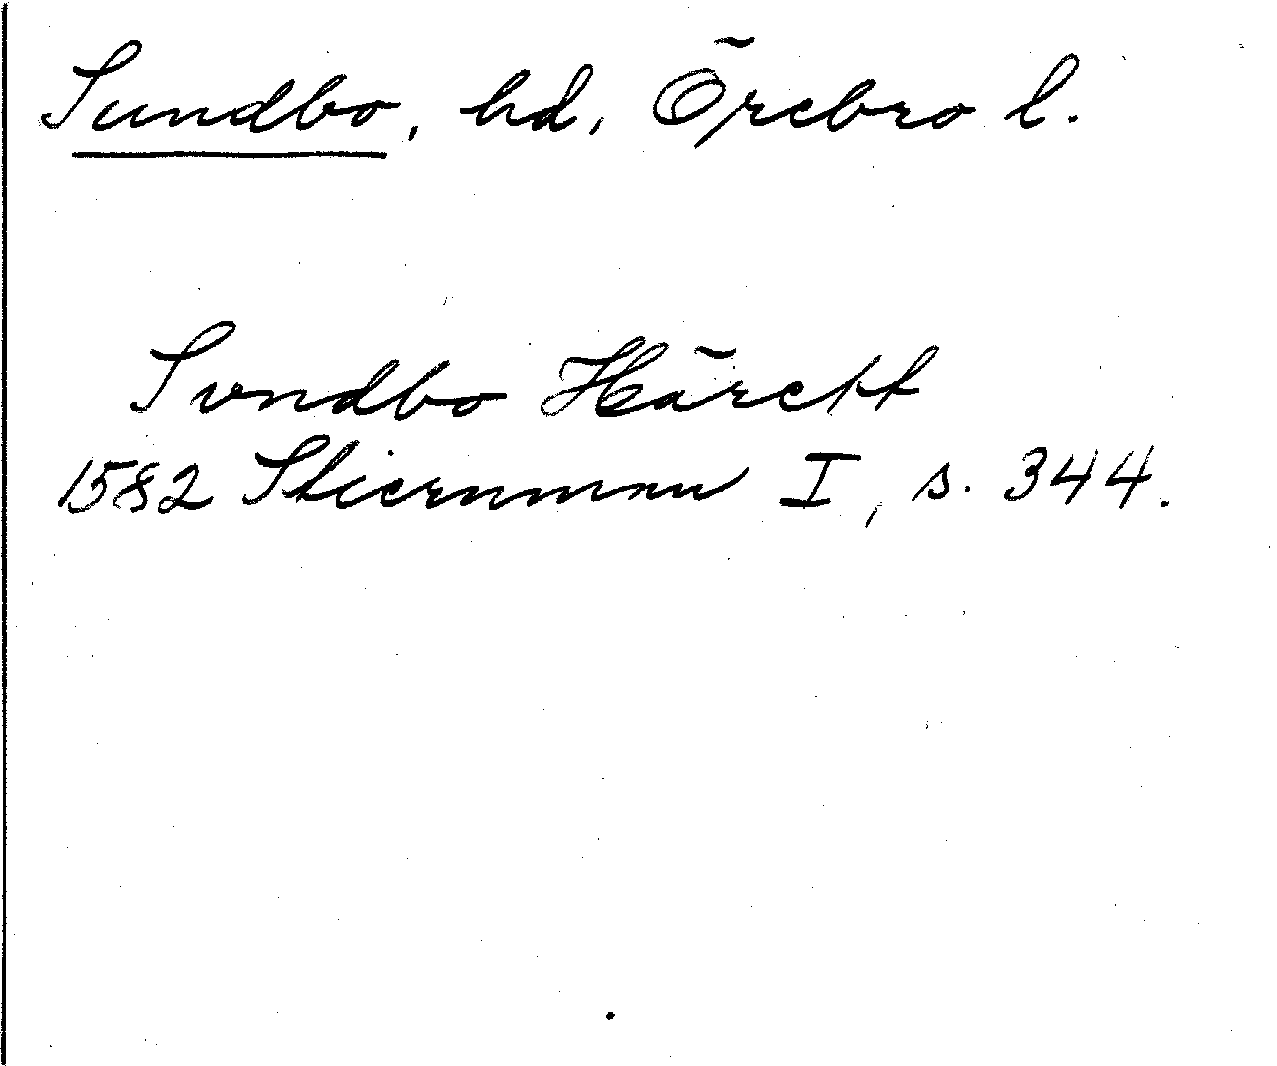 Sundbo, hd, Örebro l.
Svndbo Härett
1582 Stiernman I, s. 344.